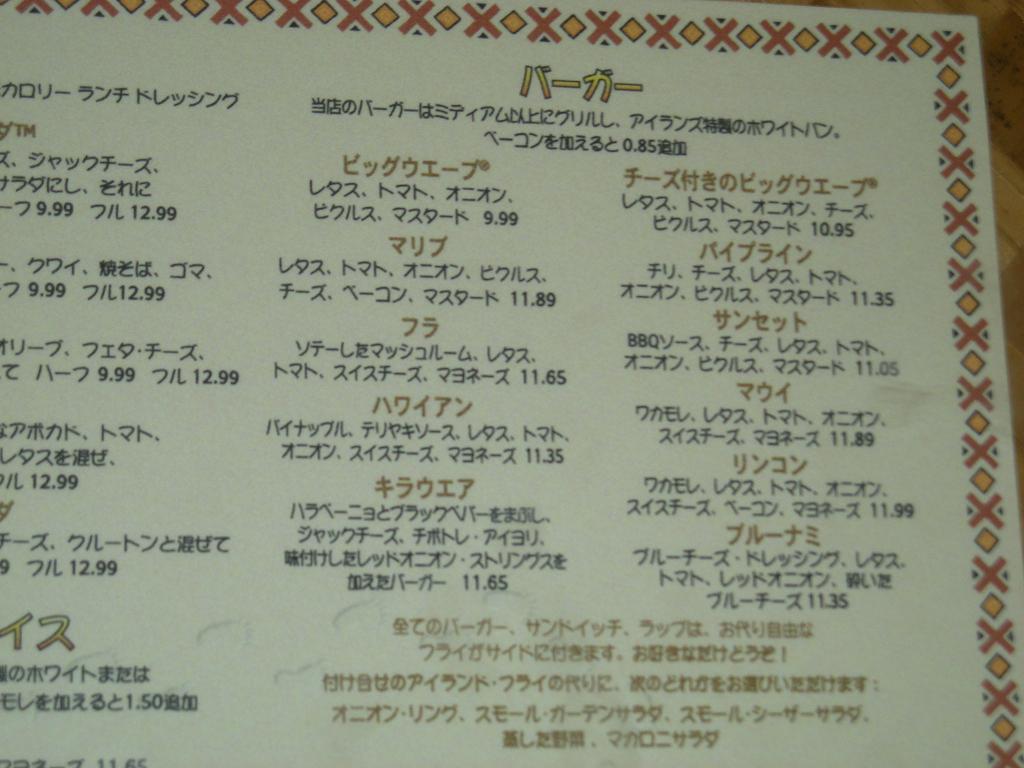 カロリー ランチ ドレッシング
ダ™
ズ、ジャックチーズ、
サラダにし、それに
ーフ 9.99 フル 12.99
ー、クワイ、焼そば、ゴマ、
ーフ 9.99 フル12.99
オリーブ、フェタ・チーズ、
て ハーフ 9.99 フル 12.99
なアボカド、トマト、
レタスを混ぜ、
フル 12.99
ダ
チーズ、クルートンと混ぜて
9 フル 12.99
イス
製のホワイトまたは
モレを加えると1.50追加
マヨネーズ 11.65
バーガー
当店のバーガーはミディアム以上にグリルし、アイランズ特製のホワイトパン。
ベーコンを加えると 0.85追加
ビッグウエーブ®
レタス、トマト、オニオン、
ピクルス、マスタード 9.99
マリブ
レタス、トマト、オニオン、ピクルス、
チーズ、ベーコン、マスタード 11.89
フラ
ソテーしたマッシュルーム、レタス、
トマト、スイスチーズ、マヨネーズ 11.65
ハワイアン
パイナップル、テリヤキソース、レタス、トマト、
オニオン、スイスチーズ、マヨネーズ 11.35
キラウエア
ハラペーニョとブラックペパーをまぶし、
ジャックチーズ、チポトレ・アイヨリ、
味付けしたレッドオニオン・ストリングスを
加えたバーガー 11.65
チーズ付きのビッグウエーブ®
レタス、トマト、オニオン、チーズ、
ピクルス、マスタード 10.95
パイプライン
チリ、チーズ、レタス、トマト、
オニオン、ピクルス、マスタード 11.35
サンセット
BBQソース、チーズ、レタス、トマト、
オニオン、ピクルス、マスタード 11.05
マウイ
ワカモレ、レタス、トマト、オニオン、
スイスチーズ、マヨネーズ 11.89
リンコン
ワカモレ、レタス、トマト、オニオン、
スイスチーズ、ベーコン、マヨネーズ 11.99
ブルーナミ
ブルーチーズ・ドレッシング、レタス、
トマト、レッドオニオン、砕いた
ブルーチーズ 11.35
全てのバーガー、サンドイッチ、ラップは、お代り自由な
フライがサイドに付きます。お好きなだけどうぞ！
付け合せのアイランド・フライの代りに、次のどれかをお選びいただけます：
オニオン・リング、スモール・ガーデンサラダ、スモール・シーザーサラダ、
蒸した野菜 、マカロニサラダ